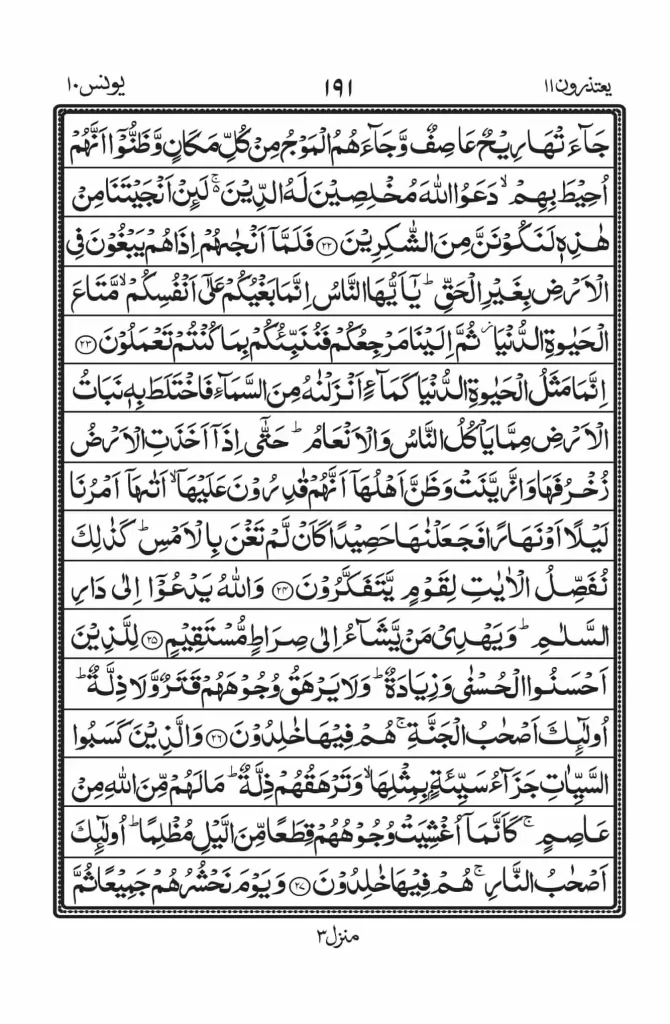 يعتذرون ١١ ١٩١ يونس ١٠
جَآءَ تْهَا رِيْحٌ عَاصِفٌ وَّجَآءَهُمُ الْمَوْجُ مِنْ كُلِّ مَكَانٍ وَّظَنُّوْۤا اَنَّهُمْ
اُحِيْطَ بِهِمْ ۙ دَعَوُا اللّٰهَ مُخْلِصِيْنَ لَهُ الدِّيْنَ ۚ۬ لَئِنْ اَنْجَيْتَنَا مِنْ
هٰذِهٖ لَنَكُوْنَنَّ مِنَ الشّٰكِرِيْنَ ۝۲۲ فَلَمَّاۤ اَنْجٰىهُمْ اِذَا هُمْ يَبْغُوْنَ فِي
الْاَرْضِ بِغَيْرِ الْحَقِّ ؕ يٰۤاَيُّهَا النَّاسُ اِنَّمَا بَغْيُكُمْ عَلٰۤى اَنْفُسِكُمْ ۙ مَّتَاعَ
الْحَيٰوةِ الدُّنْيَا ؗ ثُمَّ اِلَيْنَا مَرْجِعُكُمْ فَنُنَبِّئُكُمْ بِمَا كُنْتُمْ تَعْمَلُوْنَ ۝۲۳
اِنَّمَا مَثَلُ الْحَيٰوةِ الدُّنْيَا كَمَآءٍ اَنْزَلْنٰهُ مِنَ السَّمَآءِ فَاخْتَلَطَ بِهٖ نَبَاتُ
الْاَرْضِ مِمَّا يَاْكُلُ النَّاسُ وَالْاَنْعَامُ ؕ حَتّٰۤى اِذَاۤ اَخَذَتِ الْاَرْضُ
زُخْرُفَهَا وَازَّيَّنَتْ وَظَنَّ اَهْلُهَاۤ اَنَّهُمْ قٰدِرُوْنَ عَلَيْهَاۤ ۙ اَتٰىهَاۤ اَمْرُنَا
لَيْلًا اَوْ نَهَارًا فَجَعَلْنٰهَا حَصِيْدًا كَاَنْ لَّمْ تَغْنَ بِالْاَمْسِ ؕ كَذٰلِكَ
نُفَصِّلُ الْاٰيٰتِ لِقَوْمٍ يَّتَفَكَّرُوْنَ ۝۲۴ وَاللّٰهُ يَدْعُوْۤا اِلٰى دَارِ
السَّلٰمِ ؕ وَيَهْدِيْ مَنْ يَّشَآءُ اِلٰى صِرَاطٍ مُّسْتَقِيْمٍ ۝۲۵ لِلَّذِيْنَ
اَحْسَنُوا الْحُسْنٰى وَزِيَادَةٌ ؕ وَلَا يَرْهَقُ وُجُوْهَهُمْ قَتَرٌ وَّلَا ذِلَّةٌ ؕ
اُولٰٓئِكَ اَصْحٰبُ الْجَنَّةِ ۚ هُمْ فِيْهَا خٰلِدُوْنَ ۝۲۶ وَالَّذِيْنَ كَسَبُوا
السَّيِّاٰتِ جَزَآءُ سَيِّئَةٍۭ بِمِثْلِهَا ۙ وَتَرْهَقُهُمْ ذِلَّةٌ ؕ مَا لَهُمْ مِّنَ اللّٰهِ مِنْ
عَاصِمٍ ۚ كَاَنَّمَاۤ اُغْشِيَتْ وُجُوْهُهُمْ قِطَعًا مِّنَ الَّيْلِ مُظْلِمًا ؕ اُولٰٓئِكَ
اَصْحٰبُ النَّارِ ۚ هُمْ فِيْهَا خٰلِدُوْنَ ۝۲۷ وَيَوْمَ نَحْشُرُهُمْ جَمِيْعًا ثُمَّ
منزل ۳